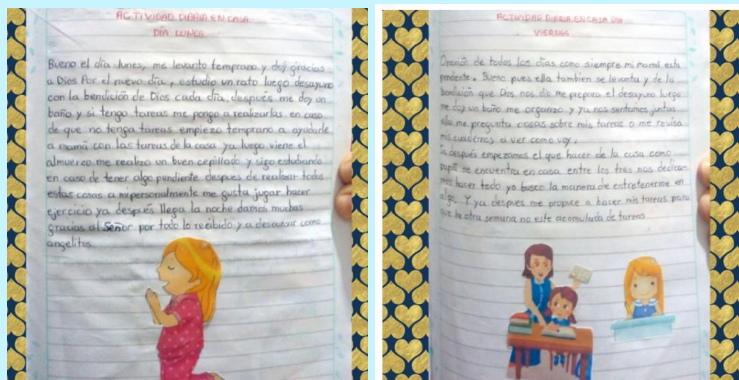 ACTIVIDAD DIARIA EN CASA
DIA LUNES
Bueno el día lunes, me levanto temprano y doy gracias
a Dios Por el nuevo día, estudio un rato luego desayuno
con la bendición de Dios cada día, después me doy un
baño y si tengo tareas me pongo a realizarlas en caso
de que no tenga tareas empiezo temprano a ayudarle
a mamá con las tareas de la casa ya luego viene el
almuerzo me realizo un buen cepillado y sigo estudiando
en caso de tener algo pendiente despues de realizar todas
estas cosas a mi personalmente me gusta jugar hacer
ejercicio ya después llega la noche damos muchas
gracias al Señor por todo lo recibido y a descansar como
angelitos.
ACTIVIDAD DIARIA EN CASA DIA
VIERNES
de todos los días como siempre mi mamá esta
pendiente. Bueno pues ella tambien se levanta y de la
bendición que Dios nos da me prepara el desayuno luego
me doy un baño me organizo y ya nos sentamos juntas
ella me pregunta cosas sobre mis tareas o me revisa
mis cuadernos a ver como voy.
Ya después empezamos el que hacer de la casa como
papá se encuentra en casa entre los tres nos dedica-
mos hacer todo yo busco la manera de entretenerme en
algo. Y ya despues me propuce a hacer mis tareas para
que la otra semana no este acomulada de tareas